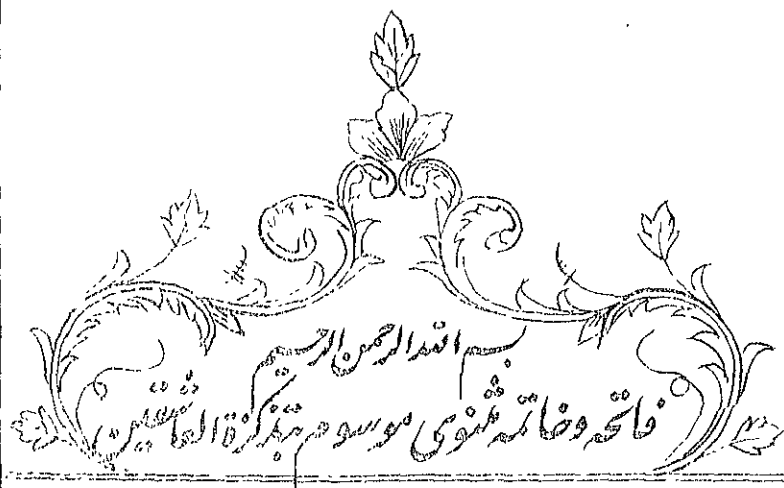 بسم الله الرحمن الرحیم
فاتحه وخاتمه مثنوی موسوم بتذکرة العاشقین